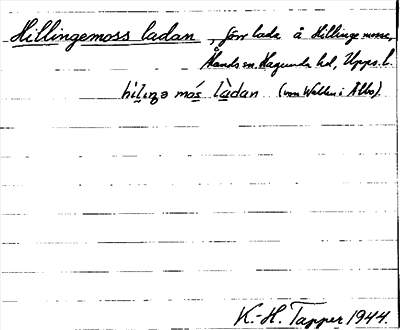 Hillingemoss ladan, förr lada å Hillinge mosse,
Ålands sn. Hagunda hd, Upps. l.
mås làdan (von Wallen i Älbo).
K.-H. Tapper 1944.